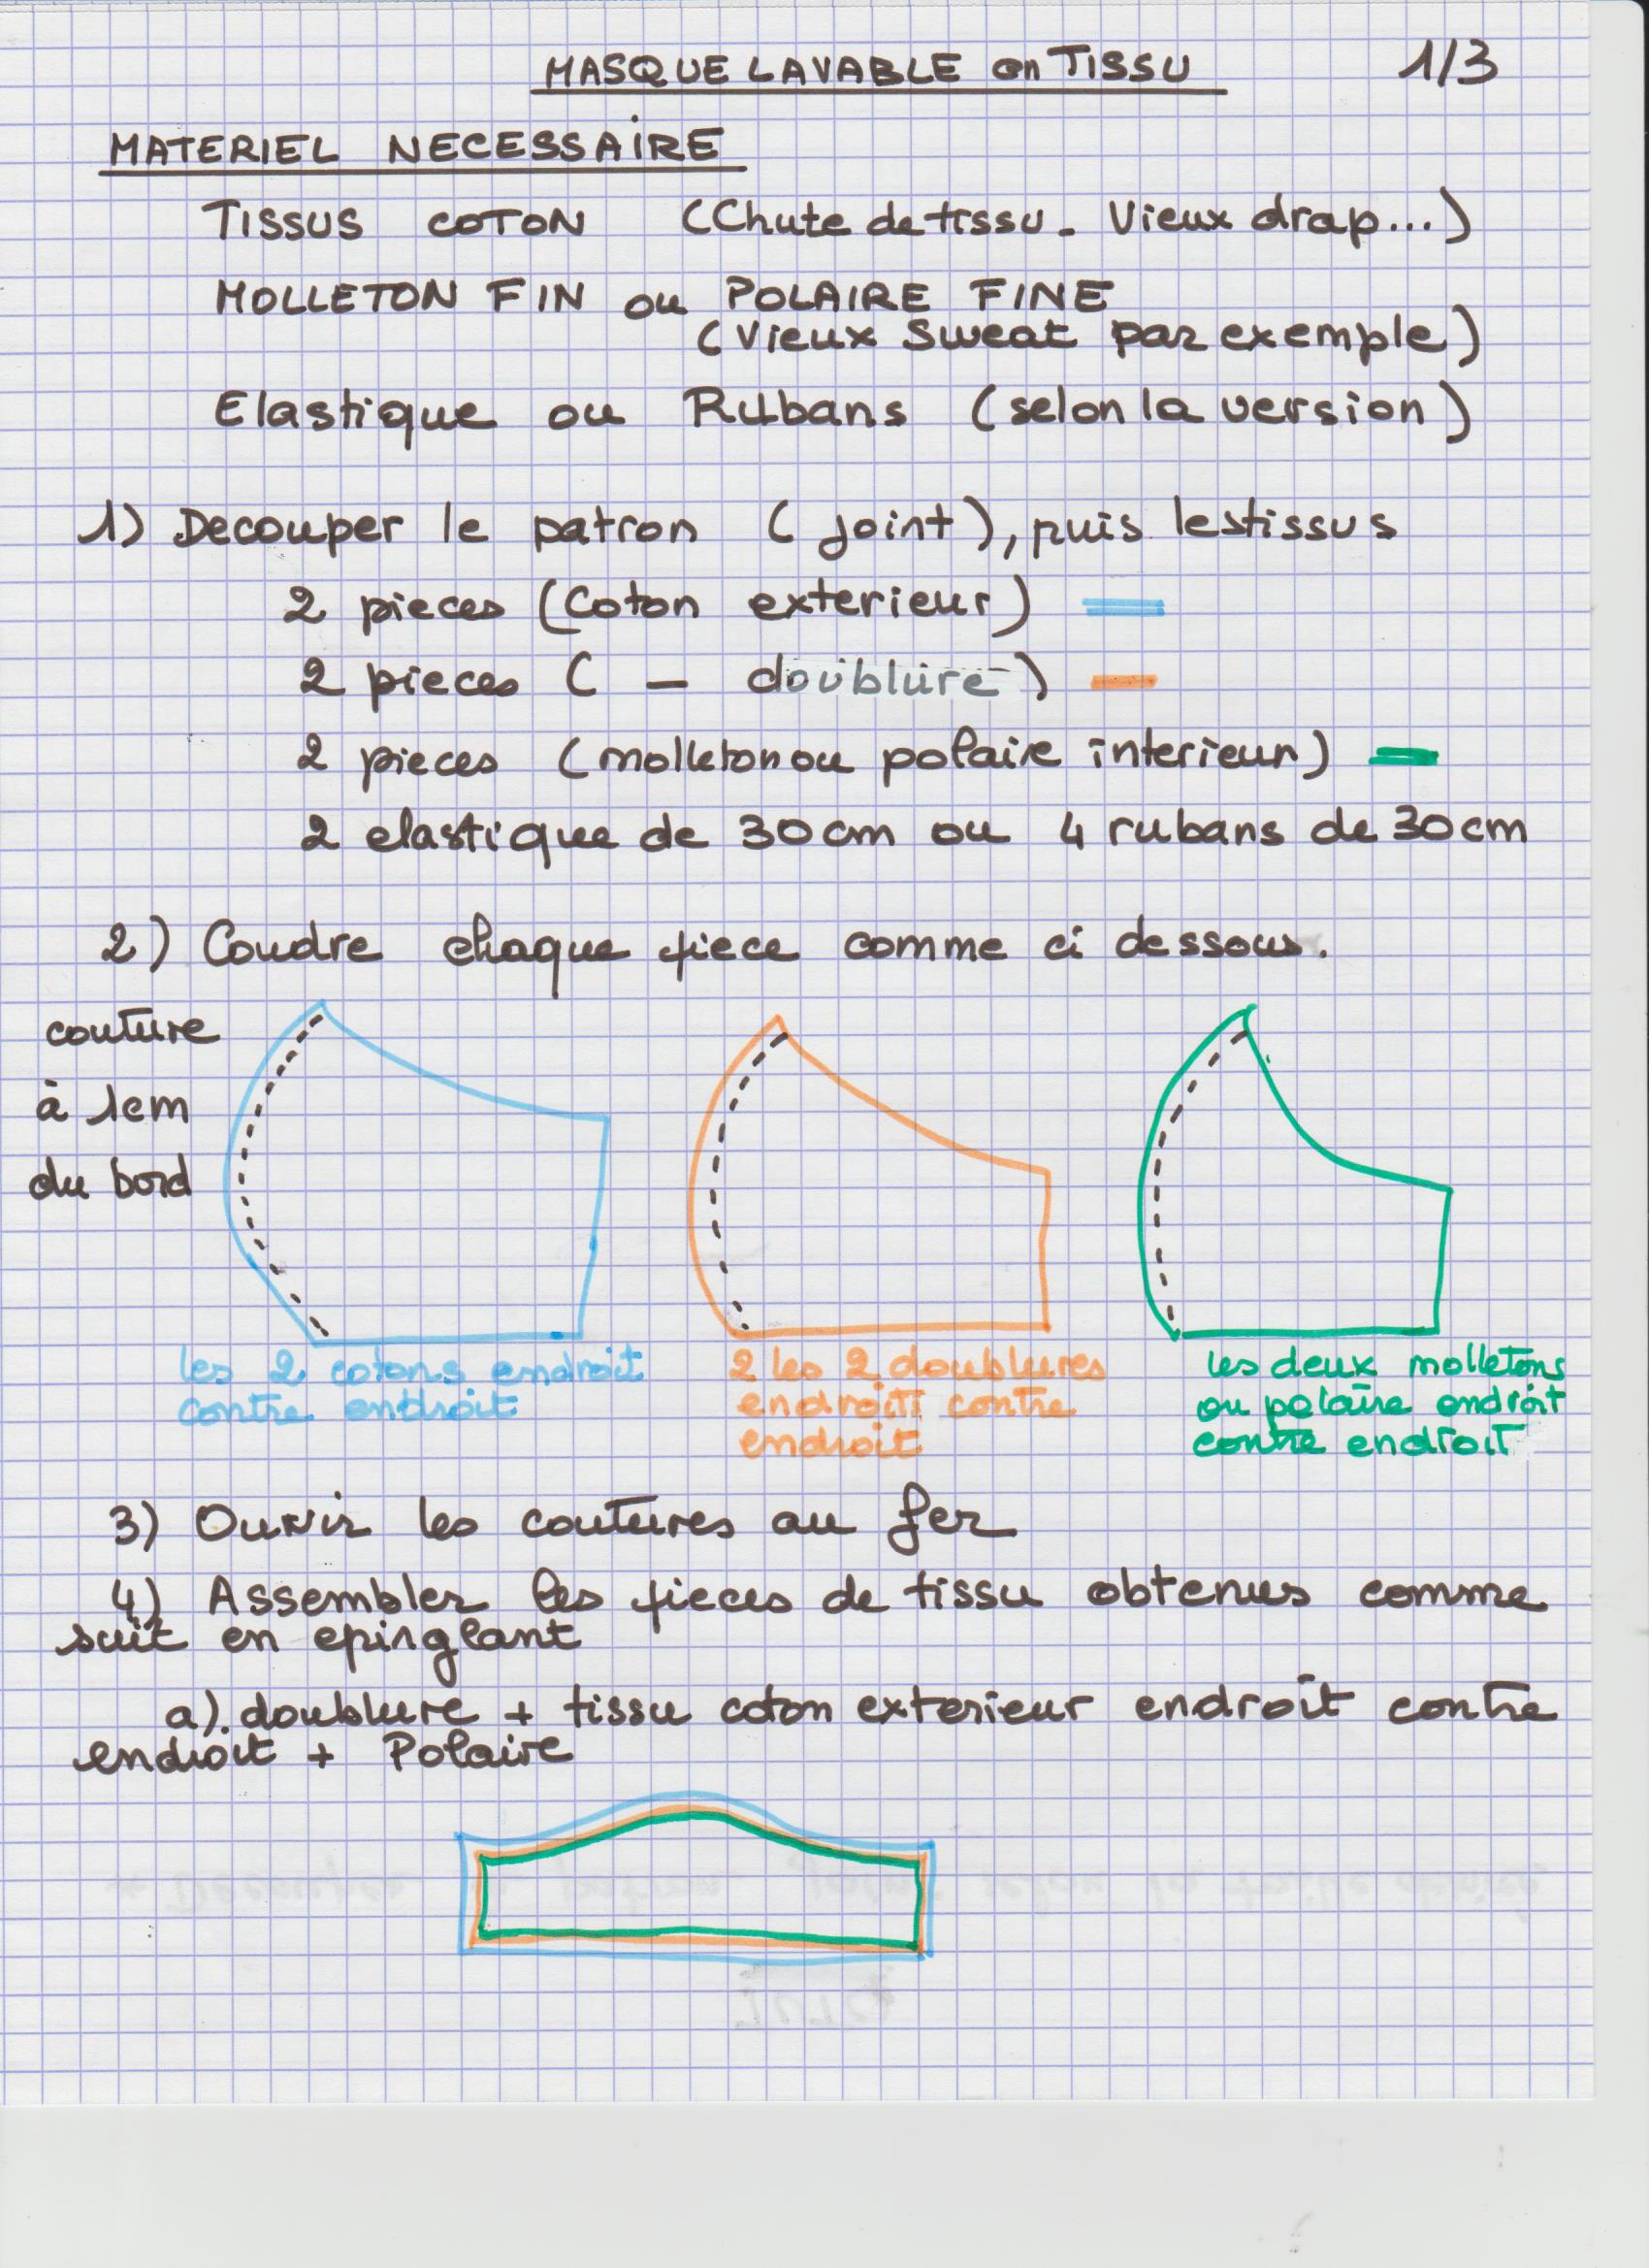 MASQUE LAVABLE en TISSU 1/3
MATERIEL NECESSAIRE
TISSUS COTON (Chute de tissu - Vieux drap...)
MOLLETON FIN ou POLAIRE FINE
(Vieux Sweat par exemple)
Elastique ou Rubans (selon la version)
1) Decouper le patron (joint), puis les tissus
2 pieces (Coton exterieur)
2 pieces ( — doublure)
2 pieces (molleton ou polaire interieur)
2 elastique de 30cm ou 4 rubans de 30cm
2) Coudre chaque piece comme ci dessous.
couture
à 1cm
du bord
les 2 cotons endroit
contre endroit
2 les 2 doublures
endroit contre
endroit
les deux molletons
ou polaire endroit
contre endroit
3) Ouvrir les coutures au fer
4) Assembler les pieces de tissu obtenus comme
suit en epinglant
a). doublure + tissu coton exterieur endroit contre
endroit + Polaire